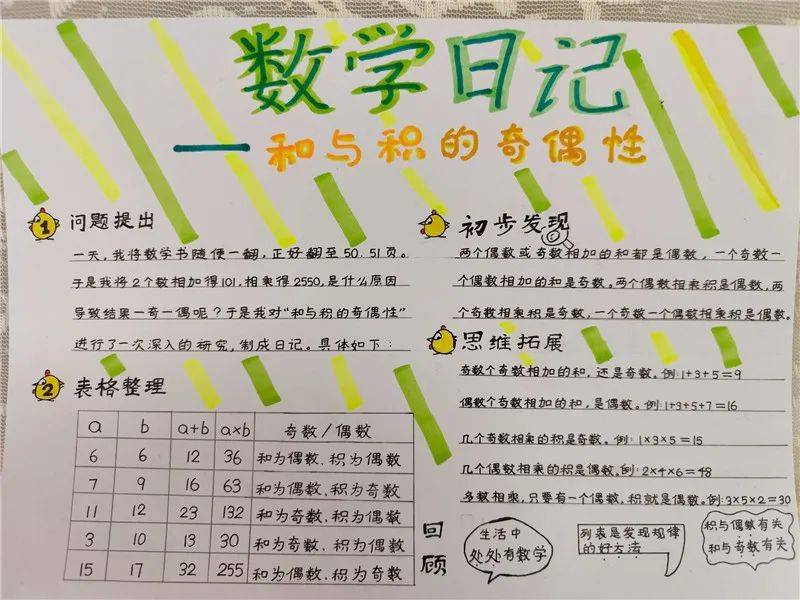 数学日记
—和与积的奇偶性
1 问题提出
一天,我将数学书随便一翻,正好翻至50、51页。
于是我将2个数相加得101,相乘得2550,是什么原因
导致结果一奇一偶呢?于是我对“和与积的奇偶性”
进行了一次深入的研究,制成日记。具体如下:
2 表格整理
a b a+b a×b 奇数/偶数
6 6 12 36 和为偶数、积为偶数
7 9 16 63 和为偶数、积为奇数
11 12 23 132 和为奇数、积为偶数
3 10 13 30 和为奇数、积为偶数
15 17 32 255 和为偶数、积为奇数
初步发现
两个偶数或奇数相加的和都是偶数,一个奇数一
个偶数相加的和是奇数。两个偶数相乘积是偶数,两
个奇数相乘积是奇数,一个奇数一个偶数相乘积是偶数。
思维拓展
奇数个奇数相加的和,还是奇数。例:1+3+5=9
偶数个奇数相加的和,是偶数。例:1+3+5+7=16
几个奇数相乘的积是奇数。例:1×3×5=15
几个偶数相乘的积是偶数。例:2×4×6=48
多数相乘,只要有一个偶数,积就是偶数。例:3×5×2=30
回顾
生活中
处处有数学
列表是发现规律
的好方法
积与偶数有关
和与奇数有关